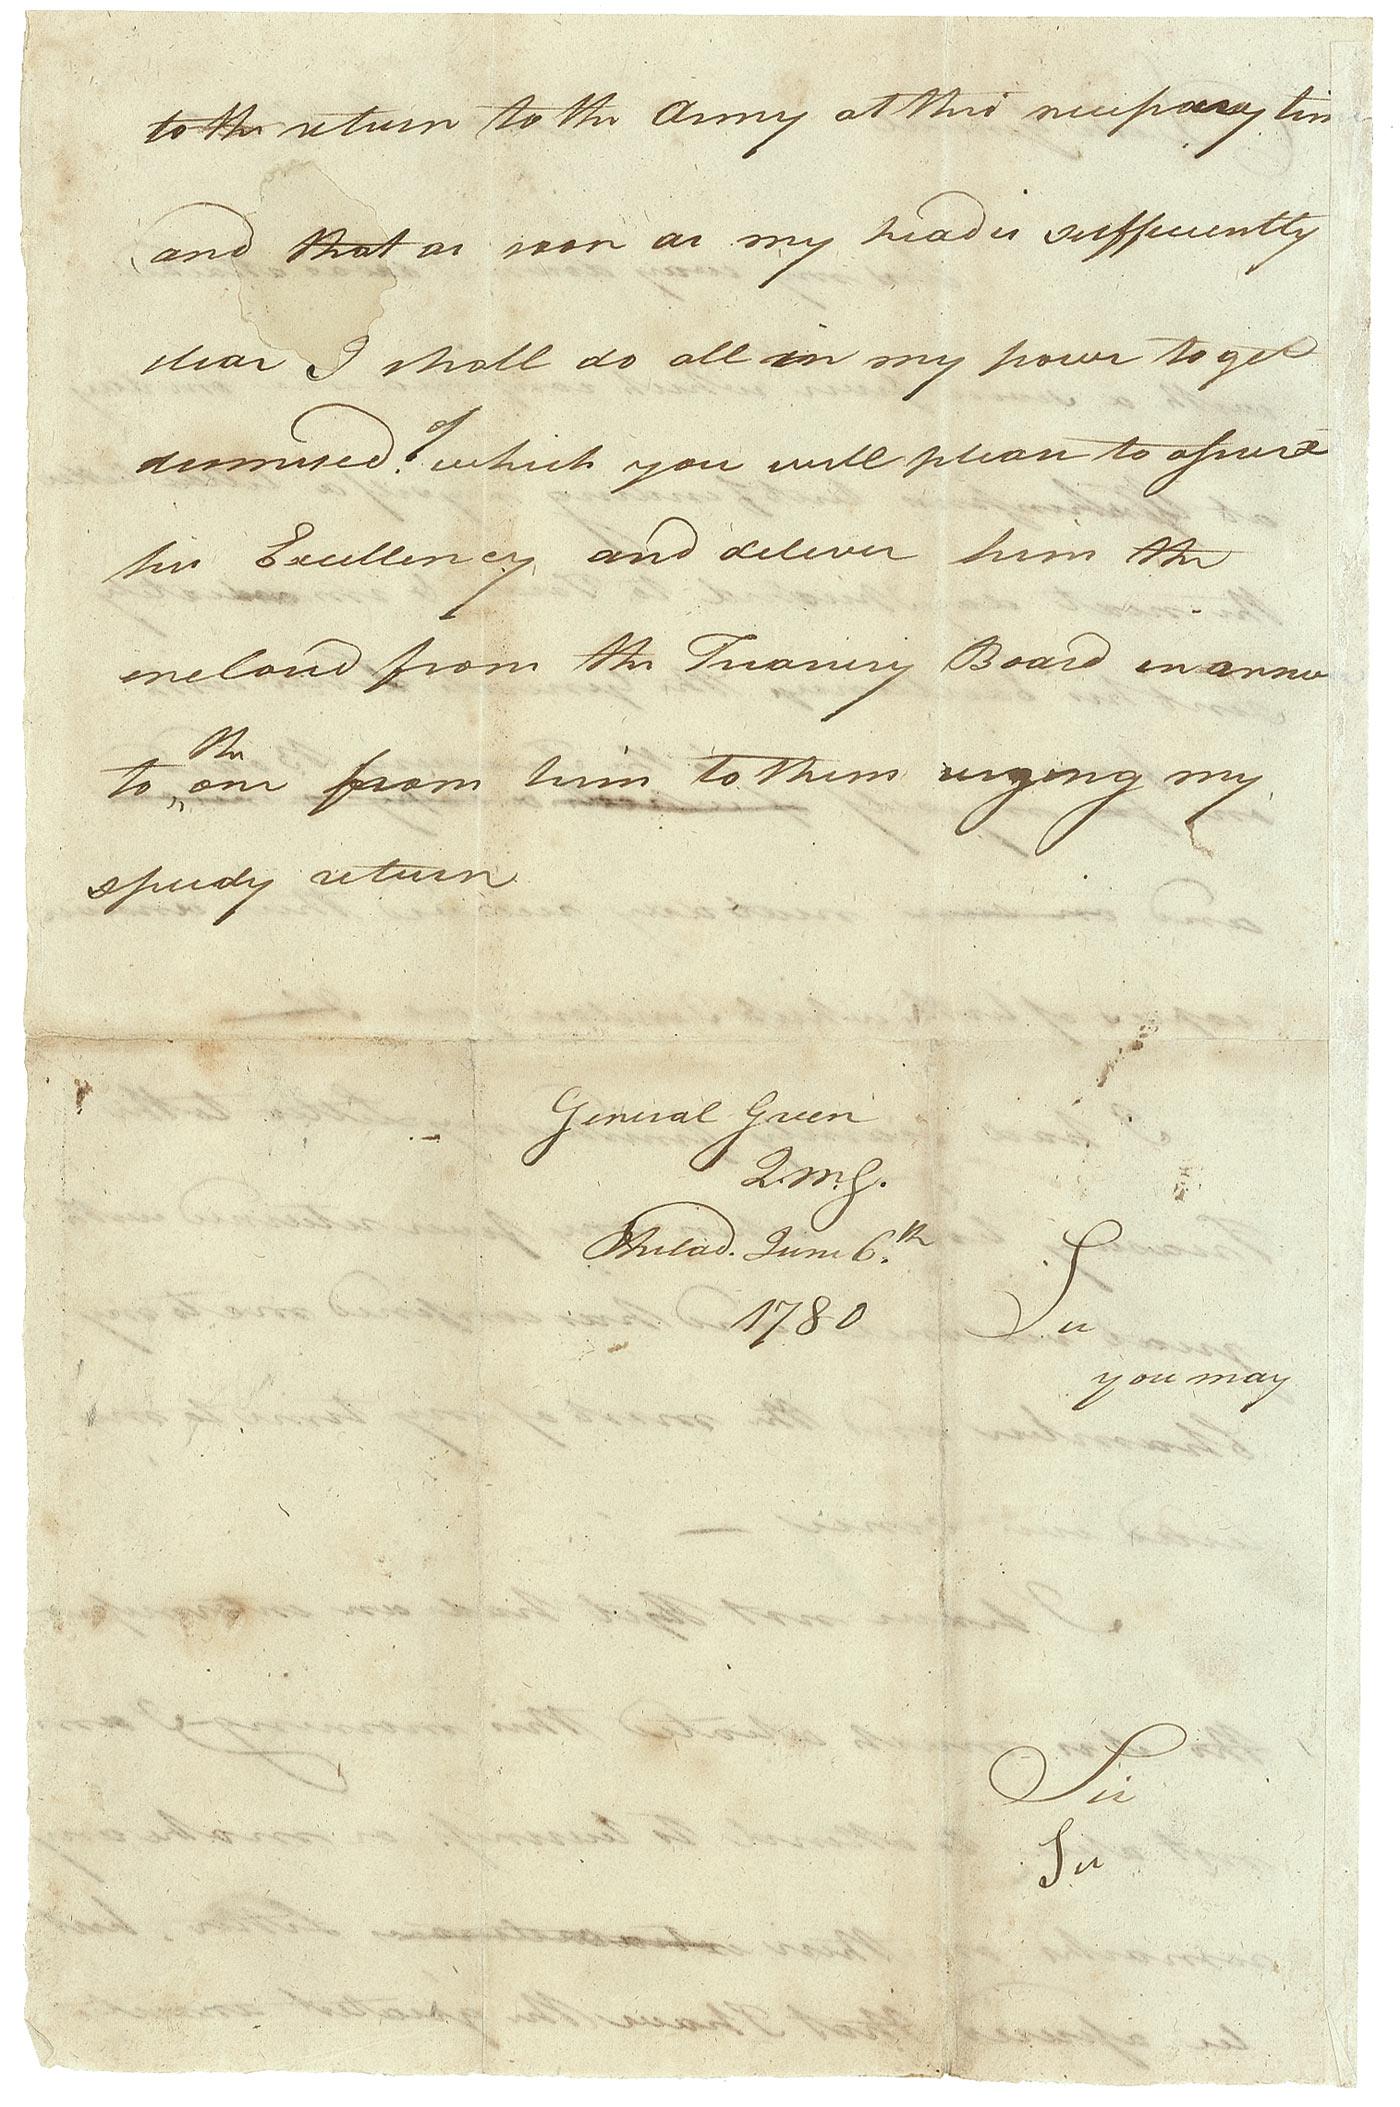 to the return to the Army at this necessary tim
and that as soon as my head is sufficiently
clear I shall do all in my power to get
dismissed. of which you will please to assure
his Excellency and deliver him the
enclosed from the Treasury Board in answ
to the one from him to them urging my
speedy return
General Green
Q.M.G.
Philad. June 6.th
1780
Sir
you may
Sir
Sir